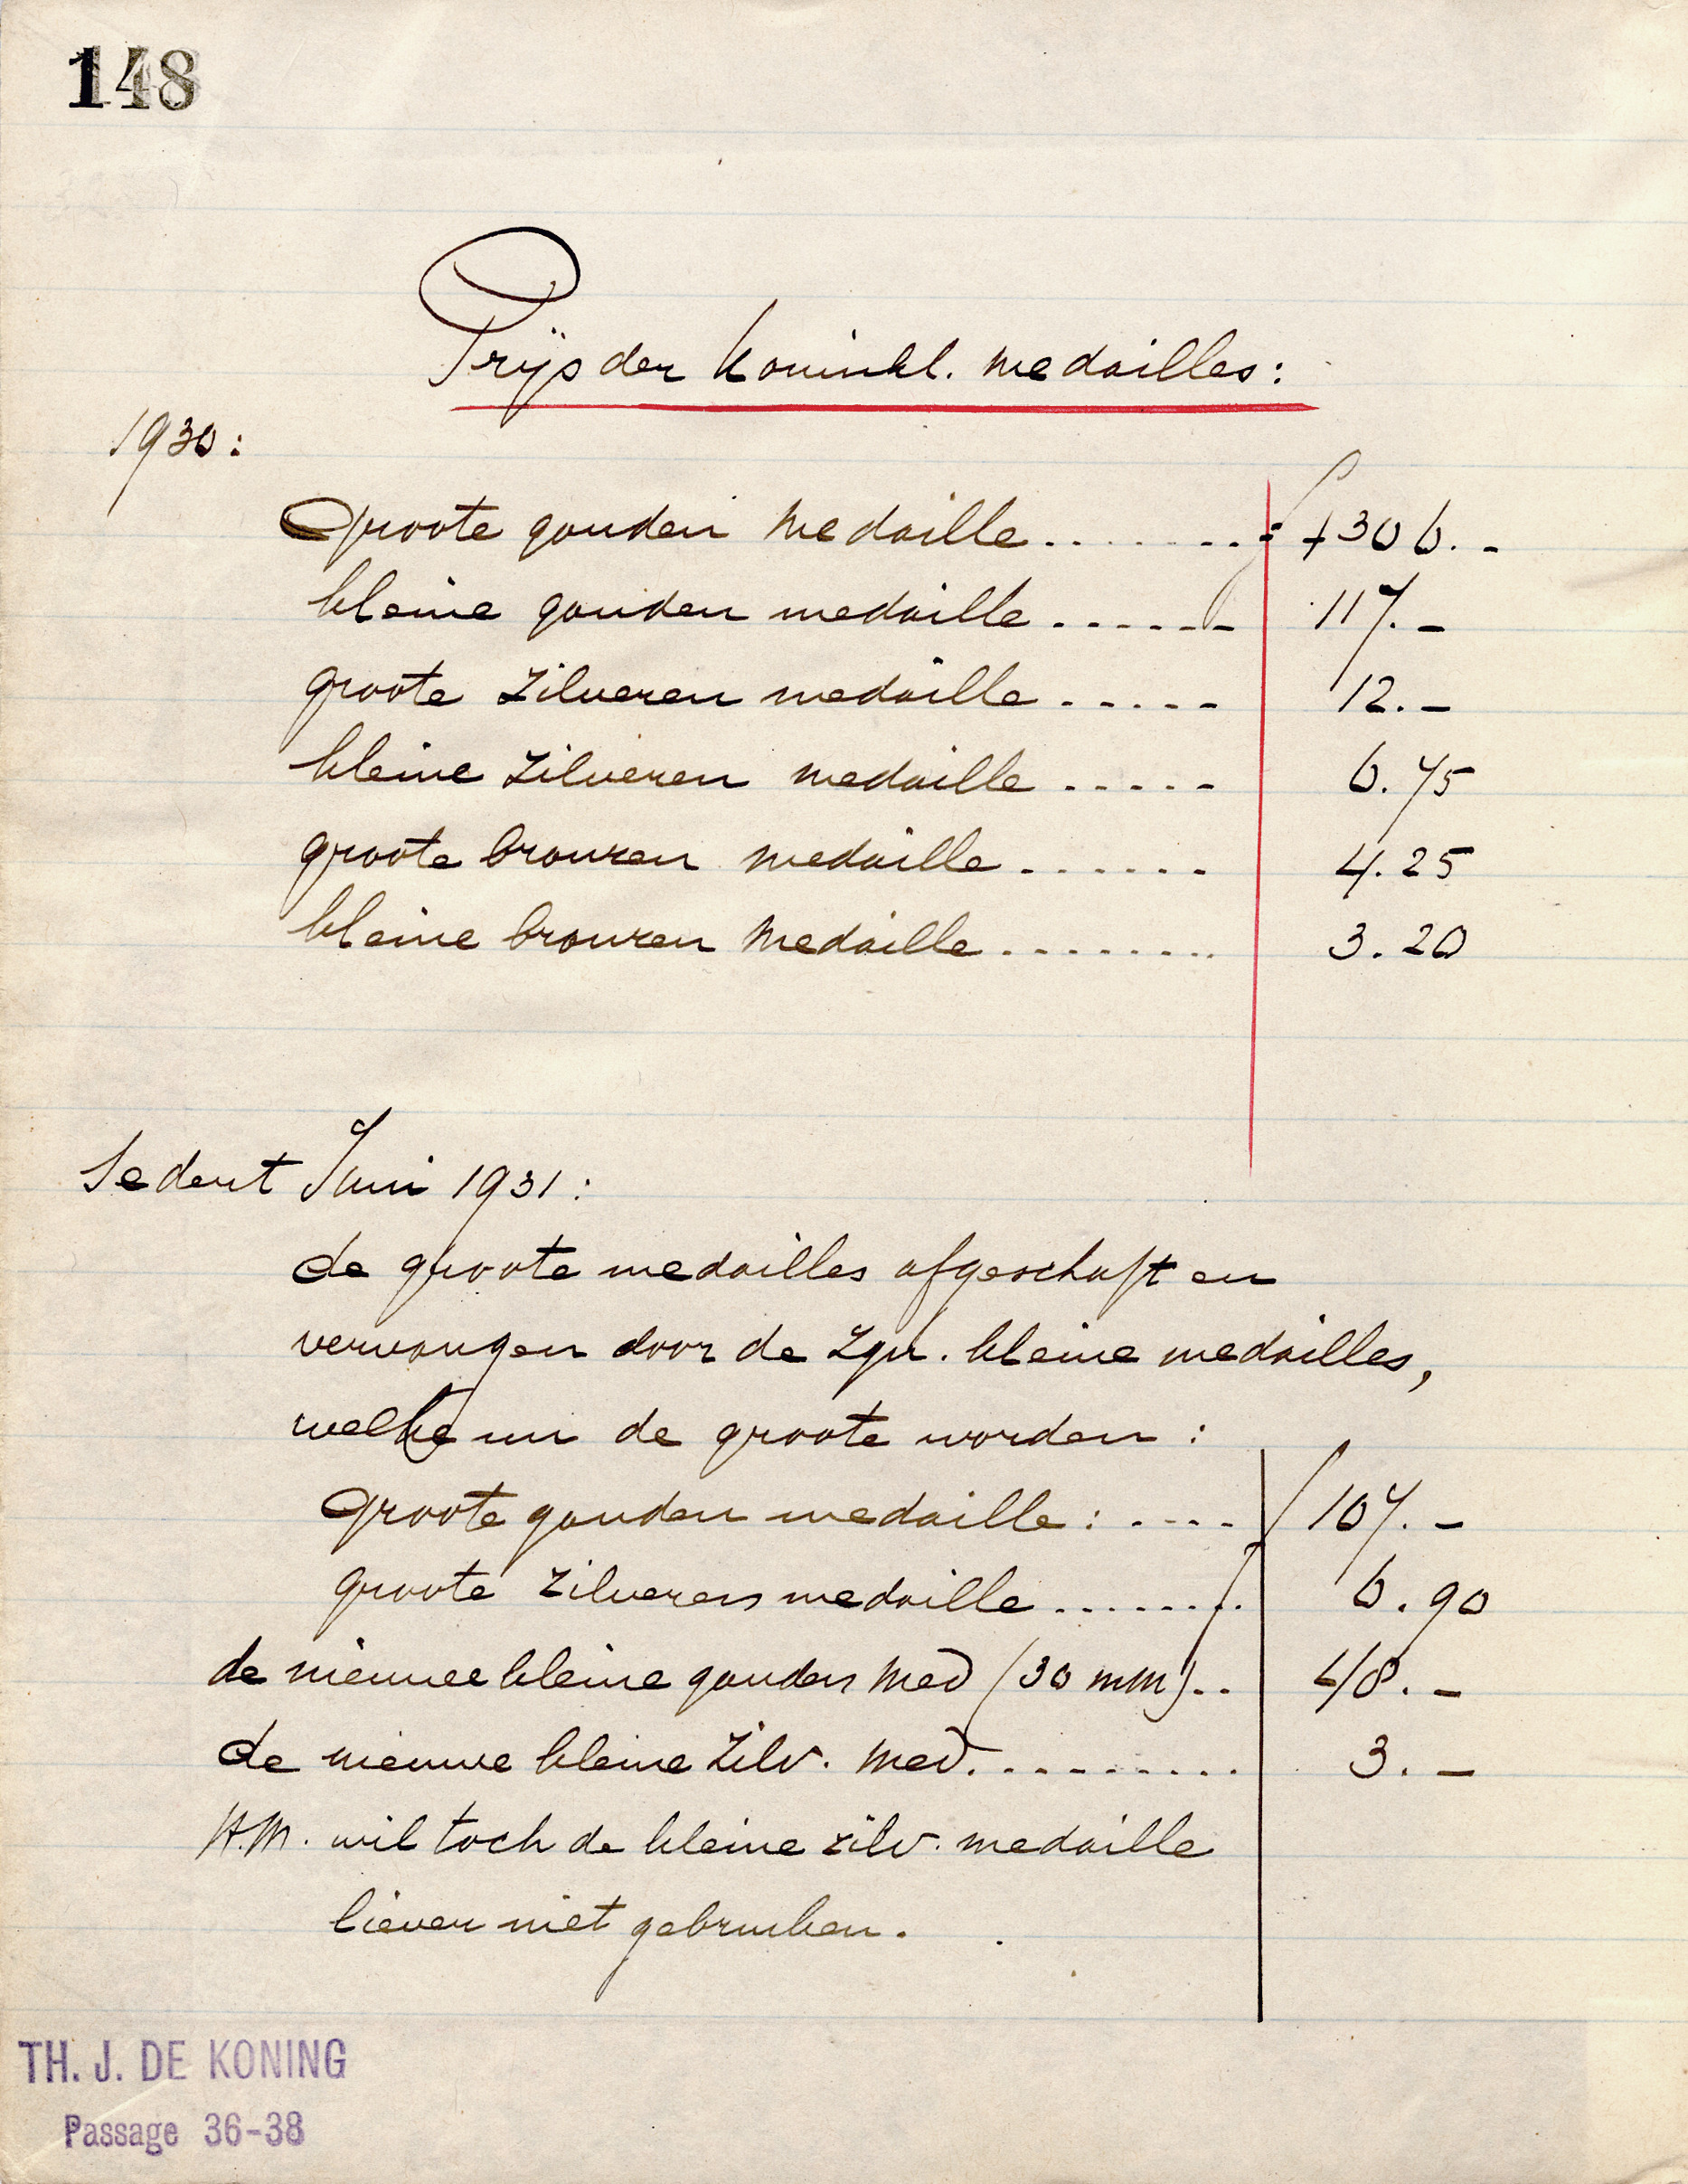 148
Prijs der Koninkl. medailles:
1930:
Groote gouden medaille........ f 306.-
kleine gouden medaille...... 117.-
groote zilveren medaille..... 12.-
kleine zilveren medaille..... 6.75
groote bronzen medaille...... 4.25
kleine bronzen medaille........ 3.20
Sedert Juni 1931:
de groote medailles afgeschaft en
vervangen door de zgn. kleine medailles,
welke nu de groote worden:
Groote gouden medaille:.... f 107.-
groote zilveren medaille....... 6.90
de nieuwe kleine gouden med (30 mm).. 48.-
de nieuwe kleine zilv. med.......... 3.-
H.M. wil toch de kleine zilv. medaille
liever niet gebruiken.
TH. J. DE KONING
Passage 36-38